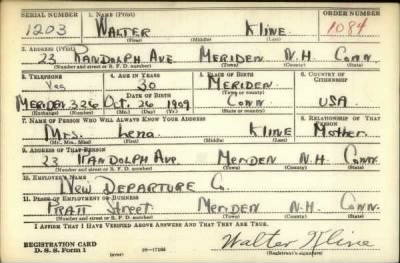 SERIAL NUMBER 1. NAME (Print) ORDER NUMBER
1203 WALTER KLINE 1084
(First) (Middle) (Last)
2. ADDRESS (Print)
23 RANDOLPH AVE. MERIDEN N.H. CONN.
(Number and street or R. F. D. number) (Town) (County) (State)
3. TELEPHONE 4. AGE IN YEARS 5. PLACE OF BIRTH 6. COUNTRY OF CITIZENSHIP
Yes 30 MERIDEN
DATE OF BIRTH (Town or county)
MERIDEN 326 Oct. 26 1909 CONN USA
(Exchange) (Number) (Mo.) (Day) (Yr.) (State or country)
7. NAME OF PERSON WHO WILL ALWAYS KNOW YOUR ADDRESS 8. RELATIONSHIP OF THAT PERSON
Mrs. Lena KLINE Mother
(Mr., Mrs., Miss) (First) (Middle) (Last)
9. ADDRESS OF THAT PERSON
23 RANDOLPH AVE. MERIDEN N.H. CONN.
(Number and street or R. F. D. number) (Town) (County) (State)
10. EMPLOYER'S NAME
NEW DEPARTURE Co.
11. PLACE OF EMPLOYMENT OR BUSINESS
PRATT STREET MERIDEN N.H. CONN.
(Number and street or R. F. D. number) (Town) (County) (State)
I AFFIRM THAT I HAVE VERIFIED ABOVE ANSWERS AND THAT THEY ARE TRUE.
REGISTRATION CARD
D. S. S. Form 1 (over) Walter Kline
(Registrant's signature)